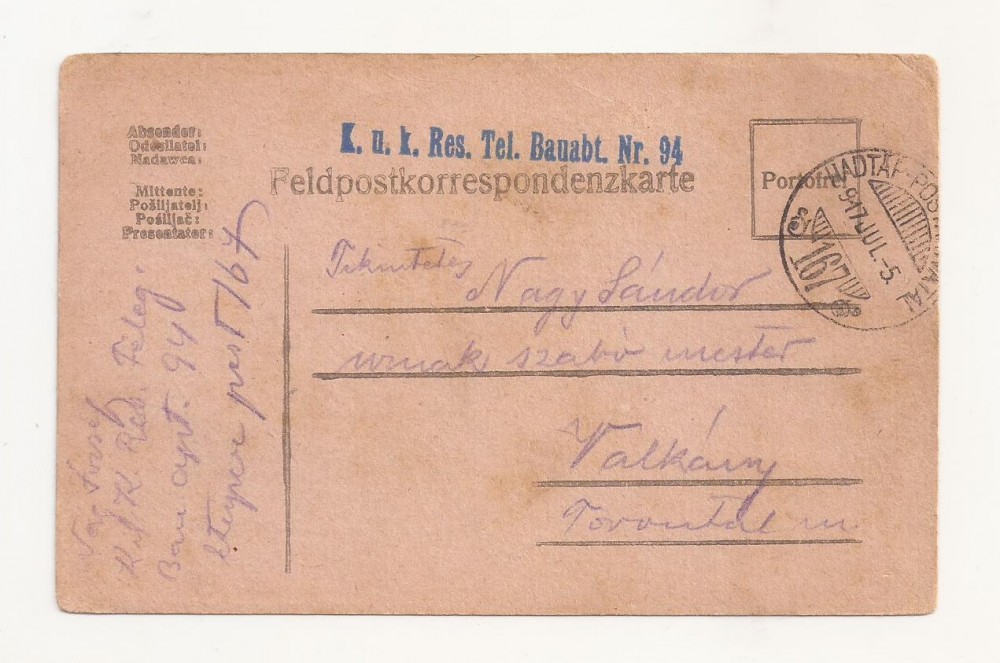 Absender:
Odesílatel:
Nadawca:
Mittente:
Pošiljatelj:
Pošiljač:
Presentater:
K. u. k. Res. Tel. Bauabt. Nr. 94
Feldpostkorrespondenzkarte
Portofrei
HADTÁP-POSTAHIVATAL
917 JUL.-5.
167
Tekintetes
Nagy Sándor
urnak szabó mester
Valkány
Torontál m
József
K. u. K. Res. Teleg.
Bau 94
post 167